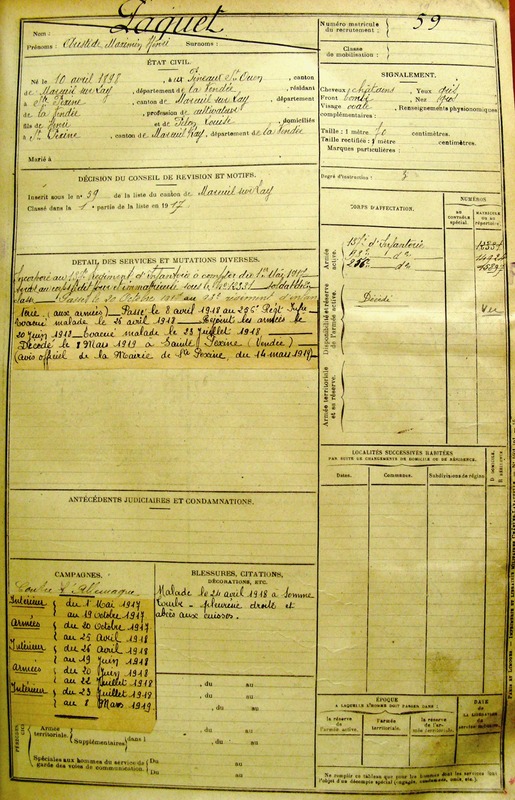 Nom : Paquet
Prénoms : Aristide Maximin Henri Surnoms :
Numéro matricule du recrutement : 59
Classe de mobilisation :
ÉTAT CIVIL.
Né le 10 avril 1898, aux Pineaux St Ouen, canton
de Mareuil sur Lay, département de la Vendée, résidant
à Ste Pexine, canton de Mareuil sur Lay, département
de la Vendée, profession de cultivateur
fils de et de Louise, domiciliés
à St Pexine, canton de Mareuil Lay, département de la Vendée
Marié à
SIGNALEMENT.
Cheveux châtains Yeux gris
Front bombé Nez gros
Visage ovale Renseignements physionomiques
complémentaires :
Taille : 1 mètre 70 centimètres.
Taille rectifiée : 1 mètre centimètres.
Marques particulières :
Degré d'instruction : 3
DÉCISION DU CONSEIL DE REVISION ET MOTIFS.
Inscrit sous le no 59 de la liste du canton de Mareuil sur Lay
Classé dans la 1 partie de la liste en 1917
CORPS D'AFFECTATION.
NUMÉROS
AU CONTRÔLE SPÉCIAL.
MATRICULE OU AU RÉPERTOIRE.
Armée active.
137e d'Infanterie
do
do
Disponibilité et réserve de l'armée active.
Décédé
Vu
Armée territoriale et sa réserve.
DETAIL DES SERVICES ET MUTATIONS DIVERSES.
Incorporé au 137e Régiment d'Infanterie à compter du 1er Mai 1917
Arrivé au corps le dit jour et immatriculé sous le No soldat de 2e
classe Passé le 20 octobre 1917 au 93e régiment d'infan
terie (aux armées) Passé le 8 avril 1918 au 296e Régt Infie
Evacué malade le 26 avril 1918 Rejoint les armées le
20 Juin 1918 Evacué malade le 23 Juillet 1918
Décédé le 8 Mars 1919 à Sainte Pexine (Vendée)
(avis officiel de la Mairie de Ste Pexine, du 14 mars 1919)
LOCALITÉS SUCCESSIVES HABITÉES
PAR SUITE DE CHANGEMENTS DE DOMICILE OU DE RÉSIDENCE.
Dates.
Communes.
Subdivisions de région
D. DOMICILE.
R. RÉSIDENCE.
ANTÉCÉDENTS JUDICIAIRES ET CONDAMNATIONS.
CAMPAGNES.
Contre l'Allemagne
Intérieur du 1 Mai 1917
au 19 octobre 1917
Armées du 20 Octobre 1917
au 25 Avril 1918
Intérieur du 26 Avril 1918
au 19 Juin 1918
Armées du 20 Juin 1918
au 22 Juillet 1918
Intérieur du 23 Juillet 1918
au 8 Mars 1919
BLESSURES, CITATIONS,
DÉCORATIONS, ETC.
Malade le 24 avril 1918 à Somme
Tourbe - pleurésie droite et
abcès aux cuisses.
, du au
, du au
, du au
, du au
Armée territoriale.
Supplémentaires
dans l
Spéciales aux hommes du service de garde des voies de communication.
Du au
Du au
ÉPOQUE
À LAQUELLE L'HOMME DOIT PASSER DANS :
la réserve de l'armée active.
l'armée territoriale.
la réserve de l'armée territoriale.
DATE
DE LA LIBÉRATION
Ne remplir ce tableau que pour les hommes dont les services font
l'objet d'un décompte spécial (engagés, condamnés, omis, etc.).